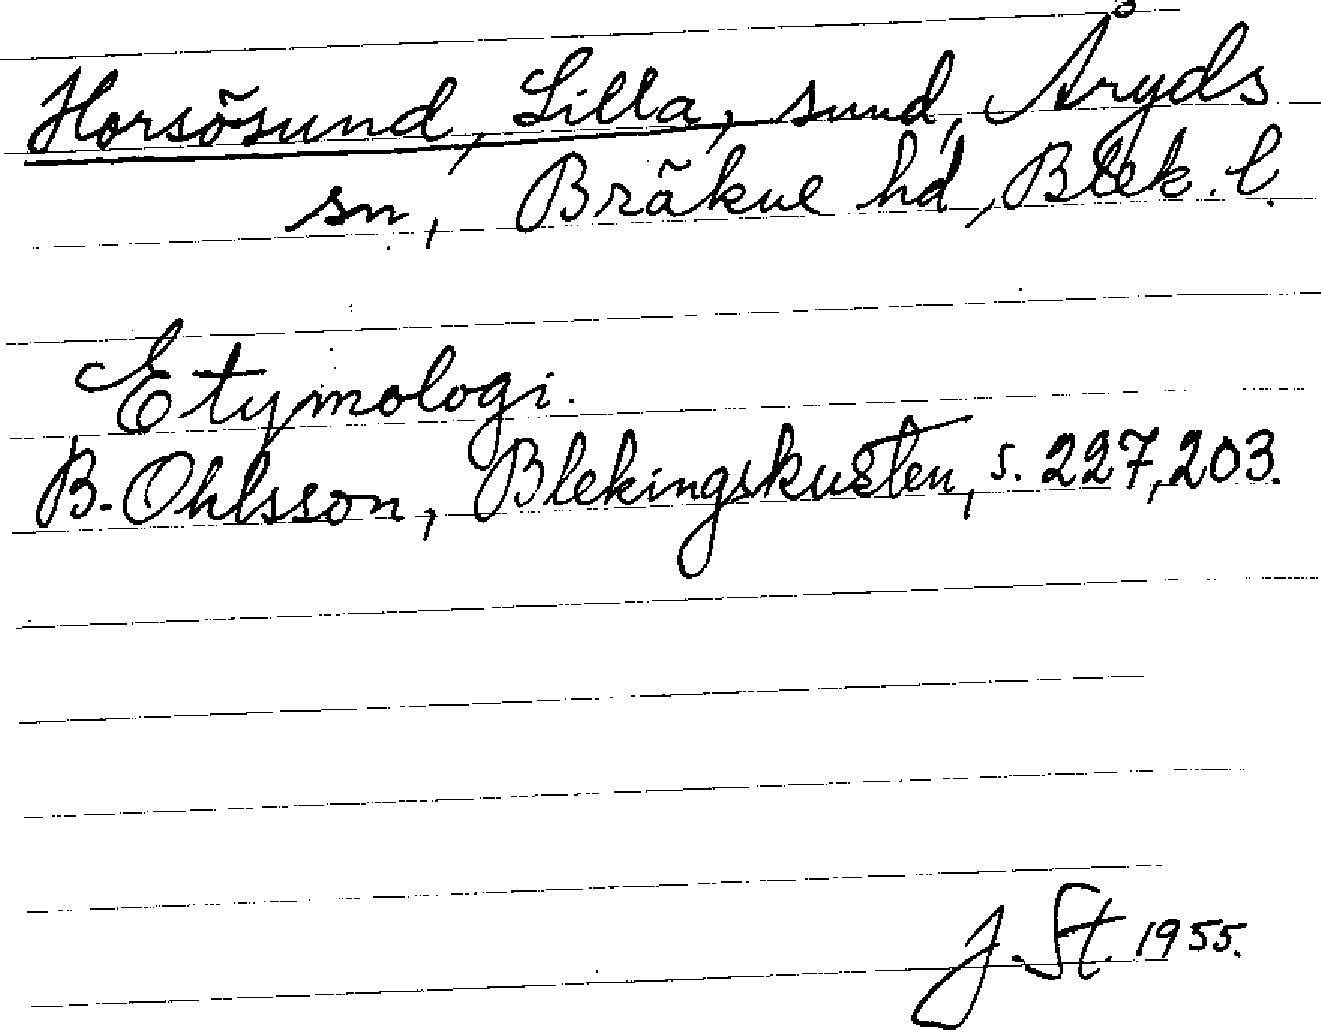 Horsösund, Lilla, sund, Åryds
sn, Bräkne hd, Blek. l.
Etymologi.
B. Ohlsson, Blekingskusten, s. 227, 203.
J. St. 1955.